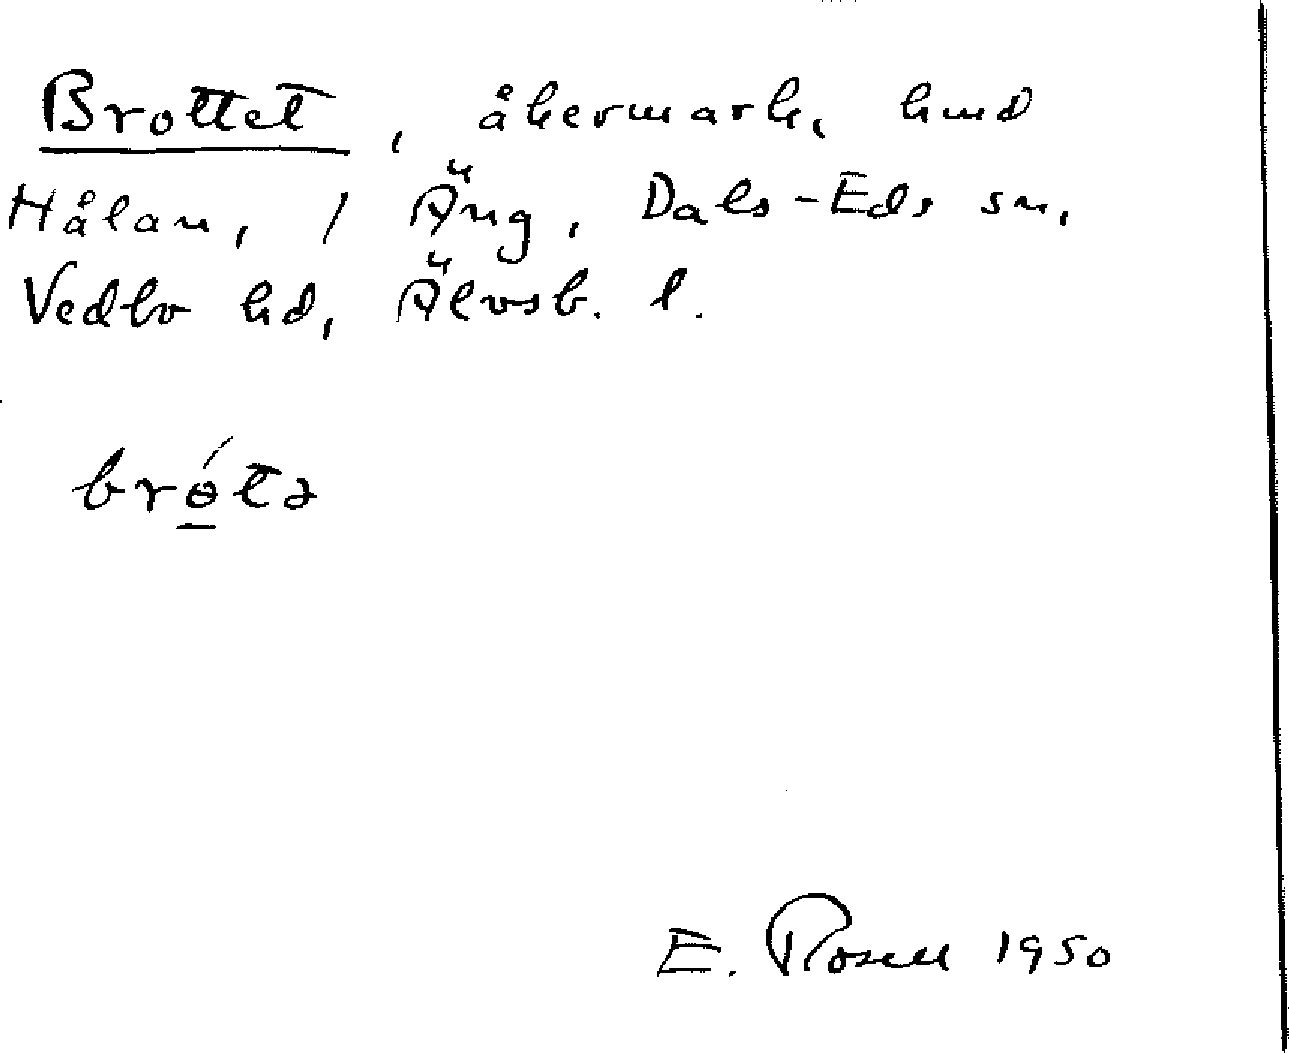 Brottet, åkermark, hmd
Hålan, / Äng, Dals-Eds sn,
Vedbo hd, Älvsb. l.
brɵ́tə
E. Rosell 1950